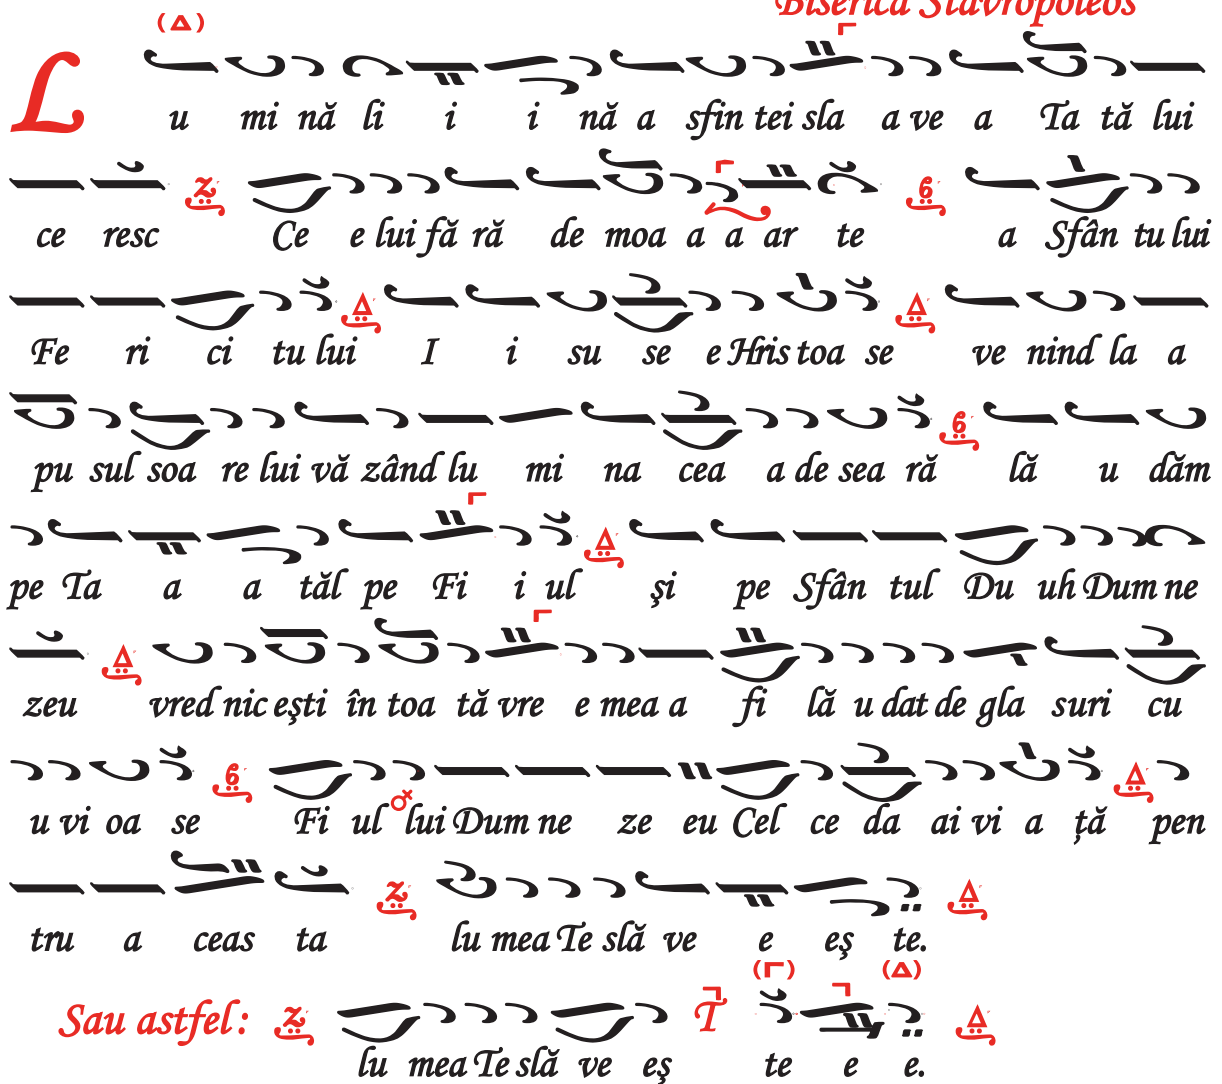 Biserica Stavropoleos
(Δ)
L u mi nă li i i nă a sfin tei sla a ve a Ta tă lui
ce resc Ce e lui fă ră de moa a a ar te a Sfân tu lui
Fe ri ci tu lui I i su se e Hris toa se ve nind la a
pu sul soa re lui vă zând lu mi na cea a de sea ră lă u dăm
pe Ta a a tăl pe Fi i ul şi pe Sfân tul Du uh Dum ne
zeu vred nic eşti în toa tă vre e mea a fi lă u dat de gla suri cu
u vi oa se Fi ul lui Dum ne ze eu Cel ce da ai vi a ţă pen
tru a ceas ta lu mea Te slă ve e eş te.
(Γ) (Δ)
Sau astfel: lu mea Te slă ve eş te e e.